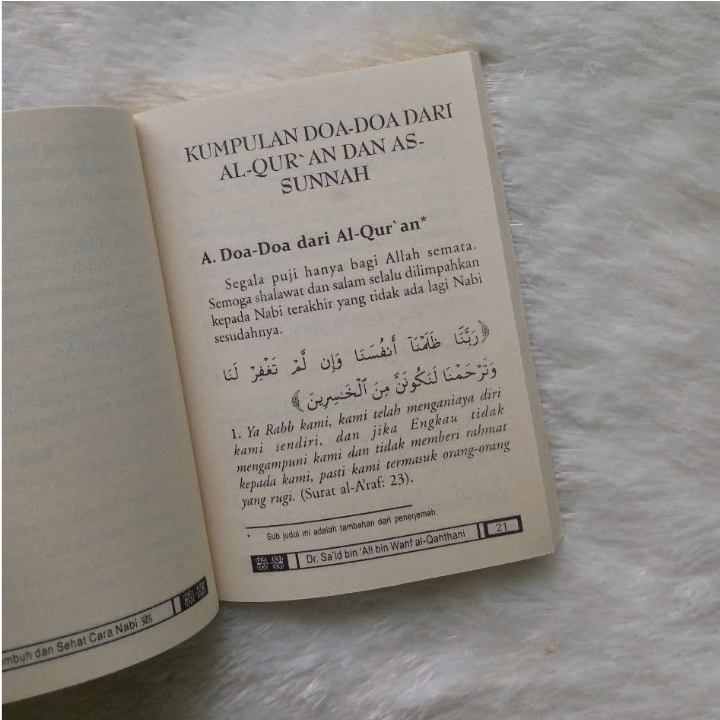 KUMPULAN DOA-DOA DARI
AL-QUR`AN DAN AS-
SUNNAH
A. Doa-Doa dari Al-Qur`an*
Segala puji hanya bagi Allah semata.
Semoga shalawat dan salam selalu dilimpahkan
kepada Nabi terakhir yang tidak ada lagi Nabi
sesudahnya.
﴿رَبَّنَا ظَلَمْنَآ أَنفُسَنَا وَإِن لَّمْ تَغْفِرْ لَنَا
وَتَرْحَمْنَا لَنَكُونَنَّ مِنَ ٱلْخَٰسِرِينَ﴾
1. Ya Rabb kami, kami telah menganiaya diri
kami sendiri, dan jika Engkau tidak
mengampuni kami dan tidak memberi rahmat
kepada kami, pasti kami termasuk orang-orang
yang rugi. (Surat al-A'raf: 23).
* Sub judul ini adalah tambahan dari penerjemah
Dr. Sa'id bin 'Ali bin Wahf al-Qahthani 21
mbuh dan Sehat Cara Nabi ﷺ